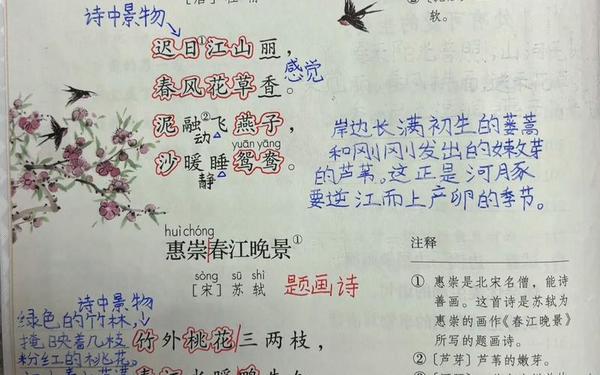 软。
诗中景物
迟日①江山丽，
春风花草香。
感觉
泥融②飞燕子，
动
yuān yāng
沙暖睡鸳鸯。
静
岸边长满初生的蒌蒿
和刚刚发出的嫩芽
的芦苇。这正是河豚
要逆江而上产卵的季节。
huì chóng
惠崇春江晚景①
sòng sū shì
［宋］苏轼
题画诗
注释
① 惠崇是北宋名僧，能诗
善画。这首诗是苏轼为
惠崇的画作《春江晚景》
所写的题画诗。
②〔芦芽〕芦苇的嫩芽。
诗中景物
绿色的竹林，
掩映着几枝
粉红的桃花。
竹外桃花三两枝，